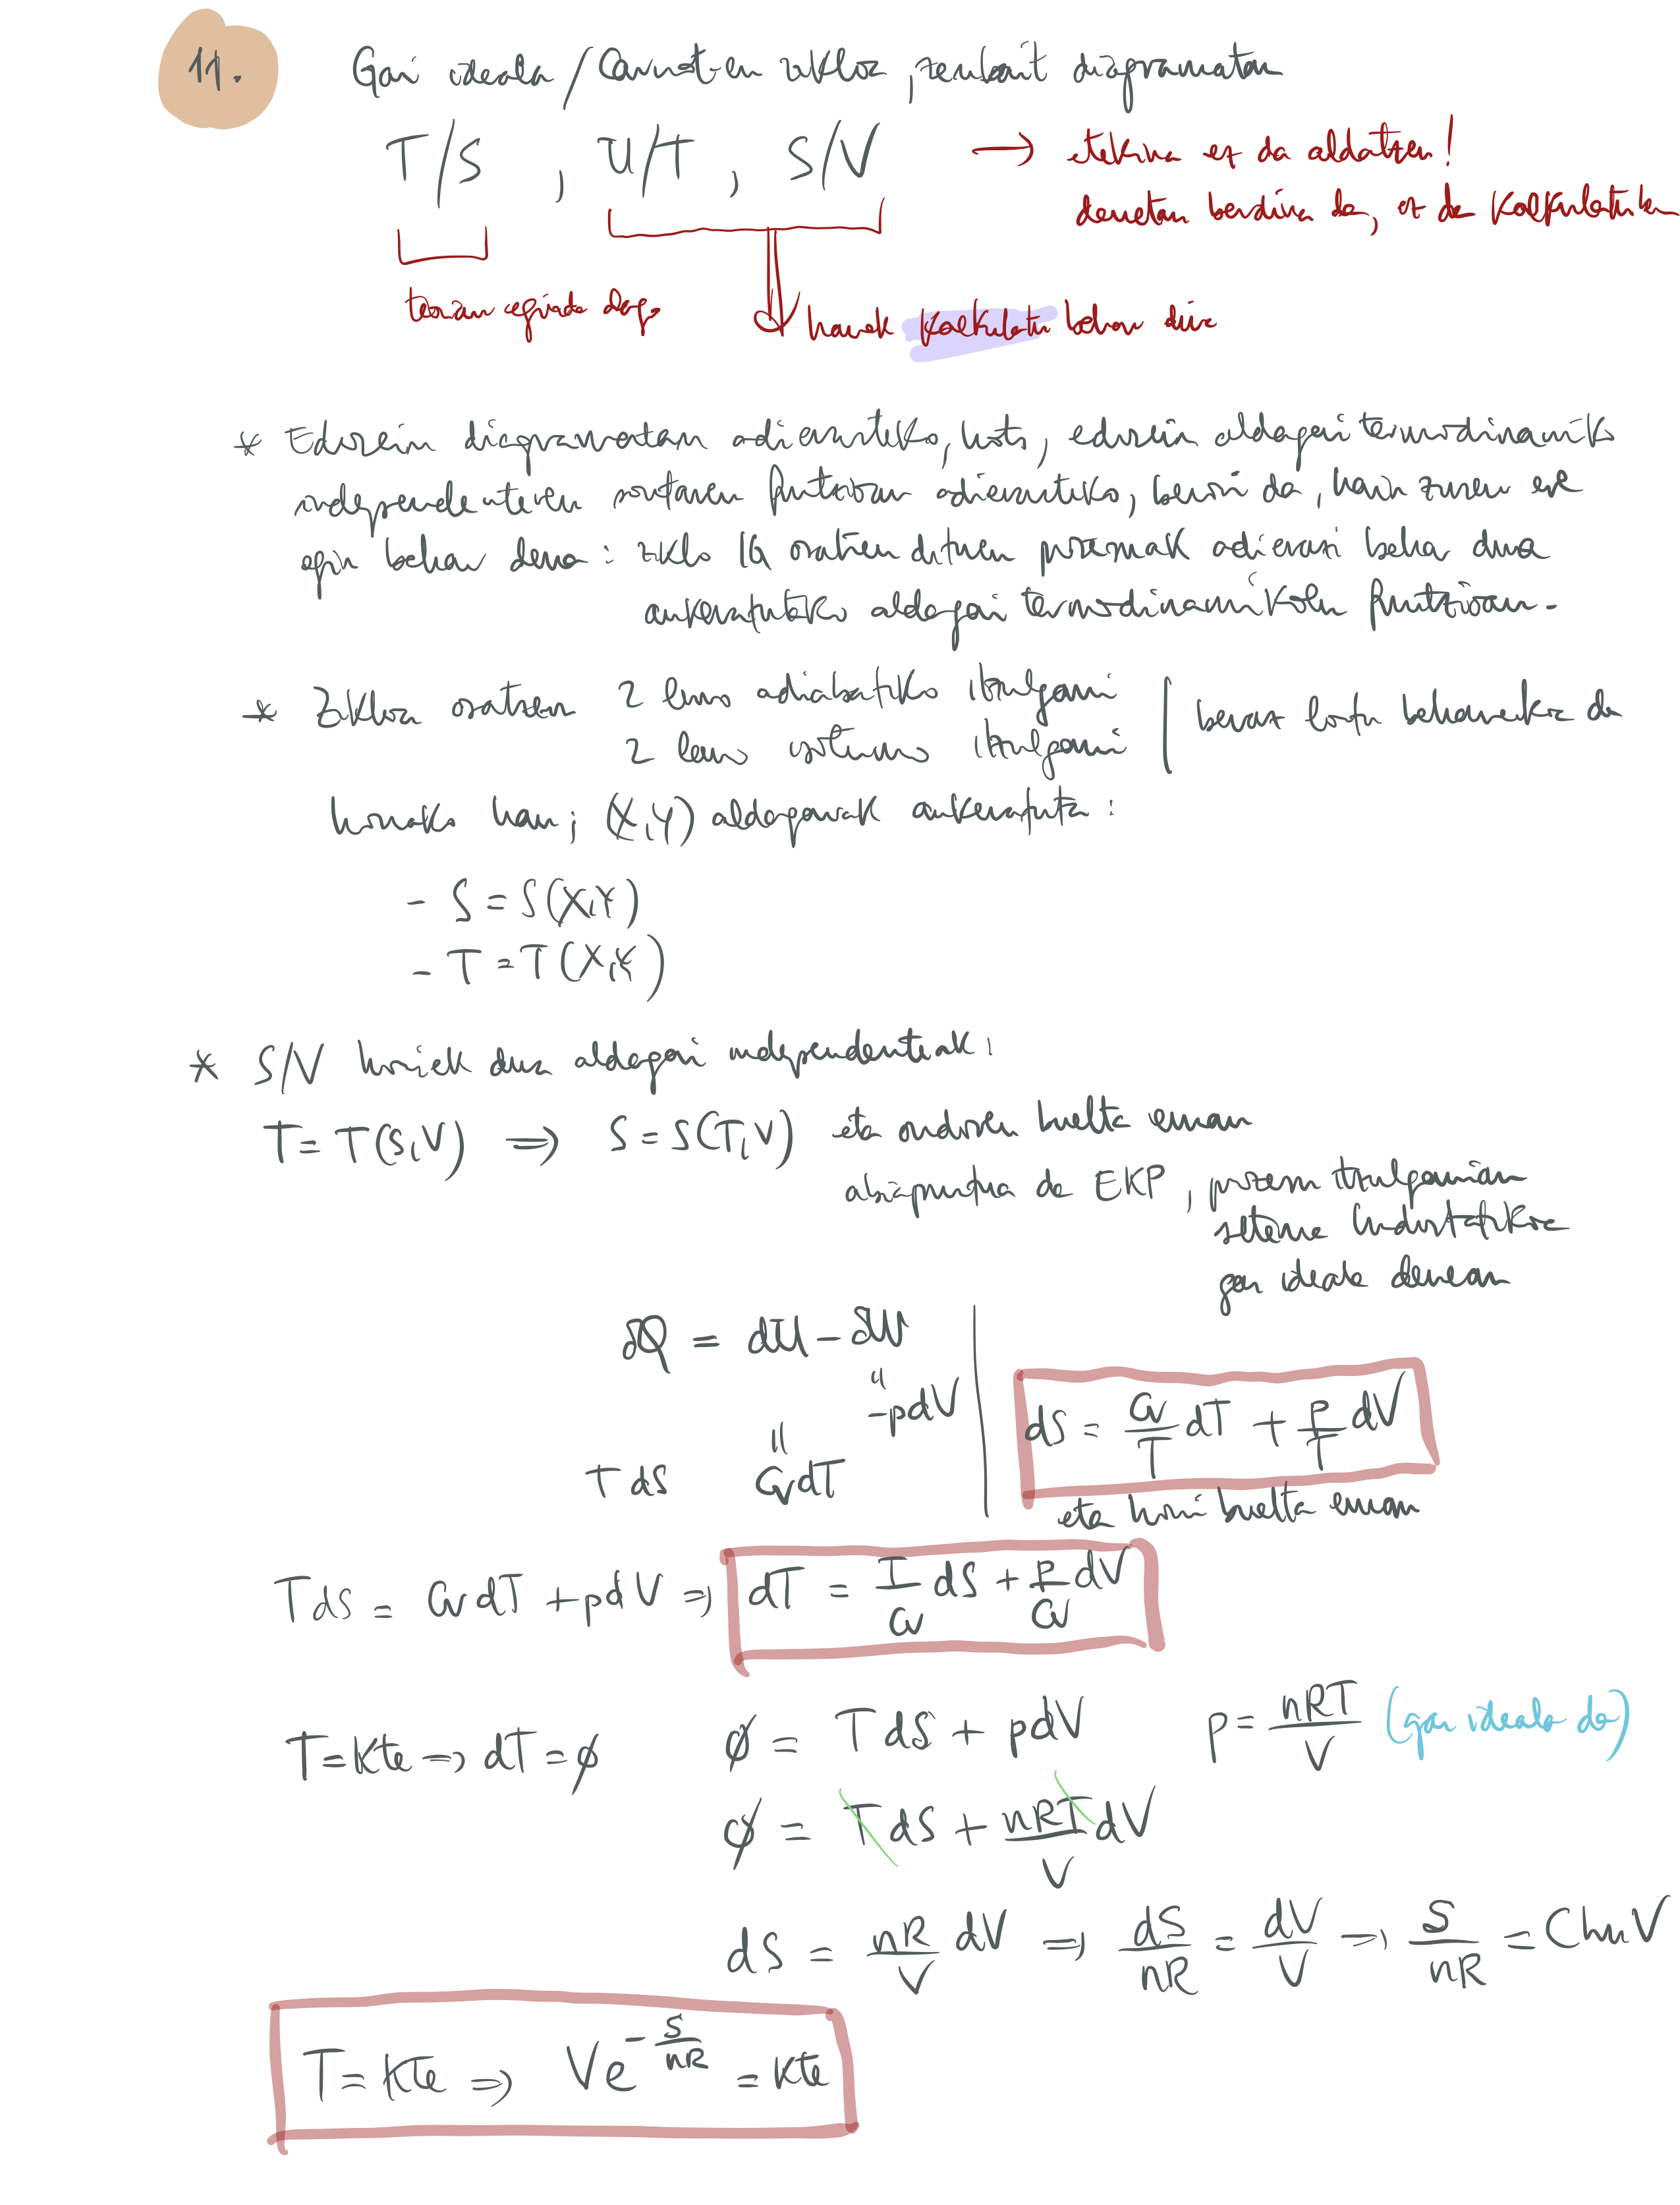 11.
Gas ideala / Carnot-en zikloa, zenbait diagramatan
T/S , U/T , S/V → etekina ez da aldatzen!
denetan berdina da, ez da kalkulatuko
teorian eginda dago
hauek kalkulatu behar dira
* Edozein diagramatan adierazteko, hots, edozein aldagai termodinamiko
independenteren funtzioan adierazteko, berdin da, hain zuzen ere
egin behar dena: ziklo bat osatzen dituen prozesuak adierazi behar dira
aukeratutako aldagai termodinamikoen funtzioan.
* Zikloa osatzen 2 lerro adiabatiko itzulgarri
2 lerro isotermo itzulgarri
beraz lortu beharrekoa da
honako hau; (X,Y) aldagaiak aukeratuta:
- S = S(X,Y)
- T = T(X,Y)
* S/V horiek dira aldagai independenteak:
T = T(S,V) ⇒ S = S(T,V) eta ondoren buelta eman
abiapuntua da EKP, prozesu itzulgarrian
sistema hidrostatikoa
gas ideala denean
δQ = dU - δW
" -pdV
TdS " CvdT
dS = Cv/T dT + p/T dV
eta hori buelta eman
TdS = CvdT + pdV ⇒ dT = T/Cv dS + p/Cv dV
T = kte → dT = ∅
∅ = TdS + pdV
p = nRT/V (gas ideala da)
∅ = TdS + nRT/V dV
dS = nR/V dV ⇒ dS/nR = dV/V ⇒ S/nR = ClnV
T = kte ⇒ Ve^(-S/nR) = kte